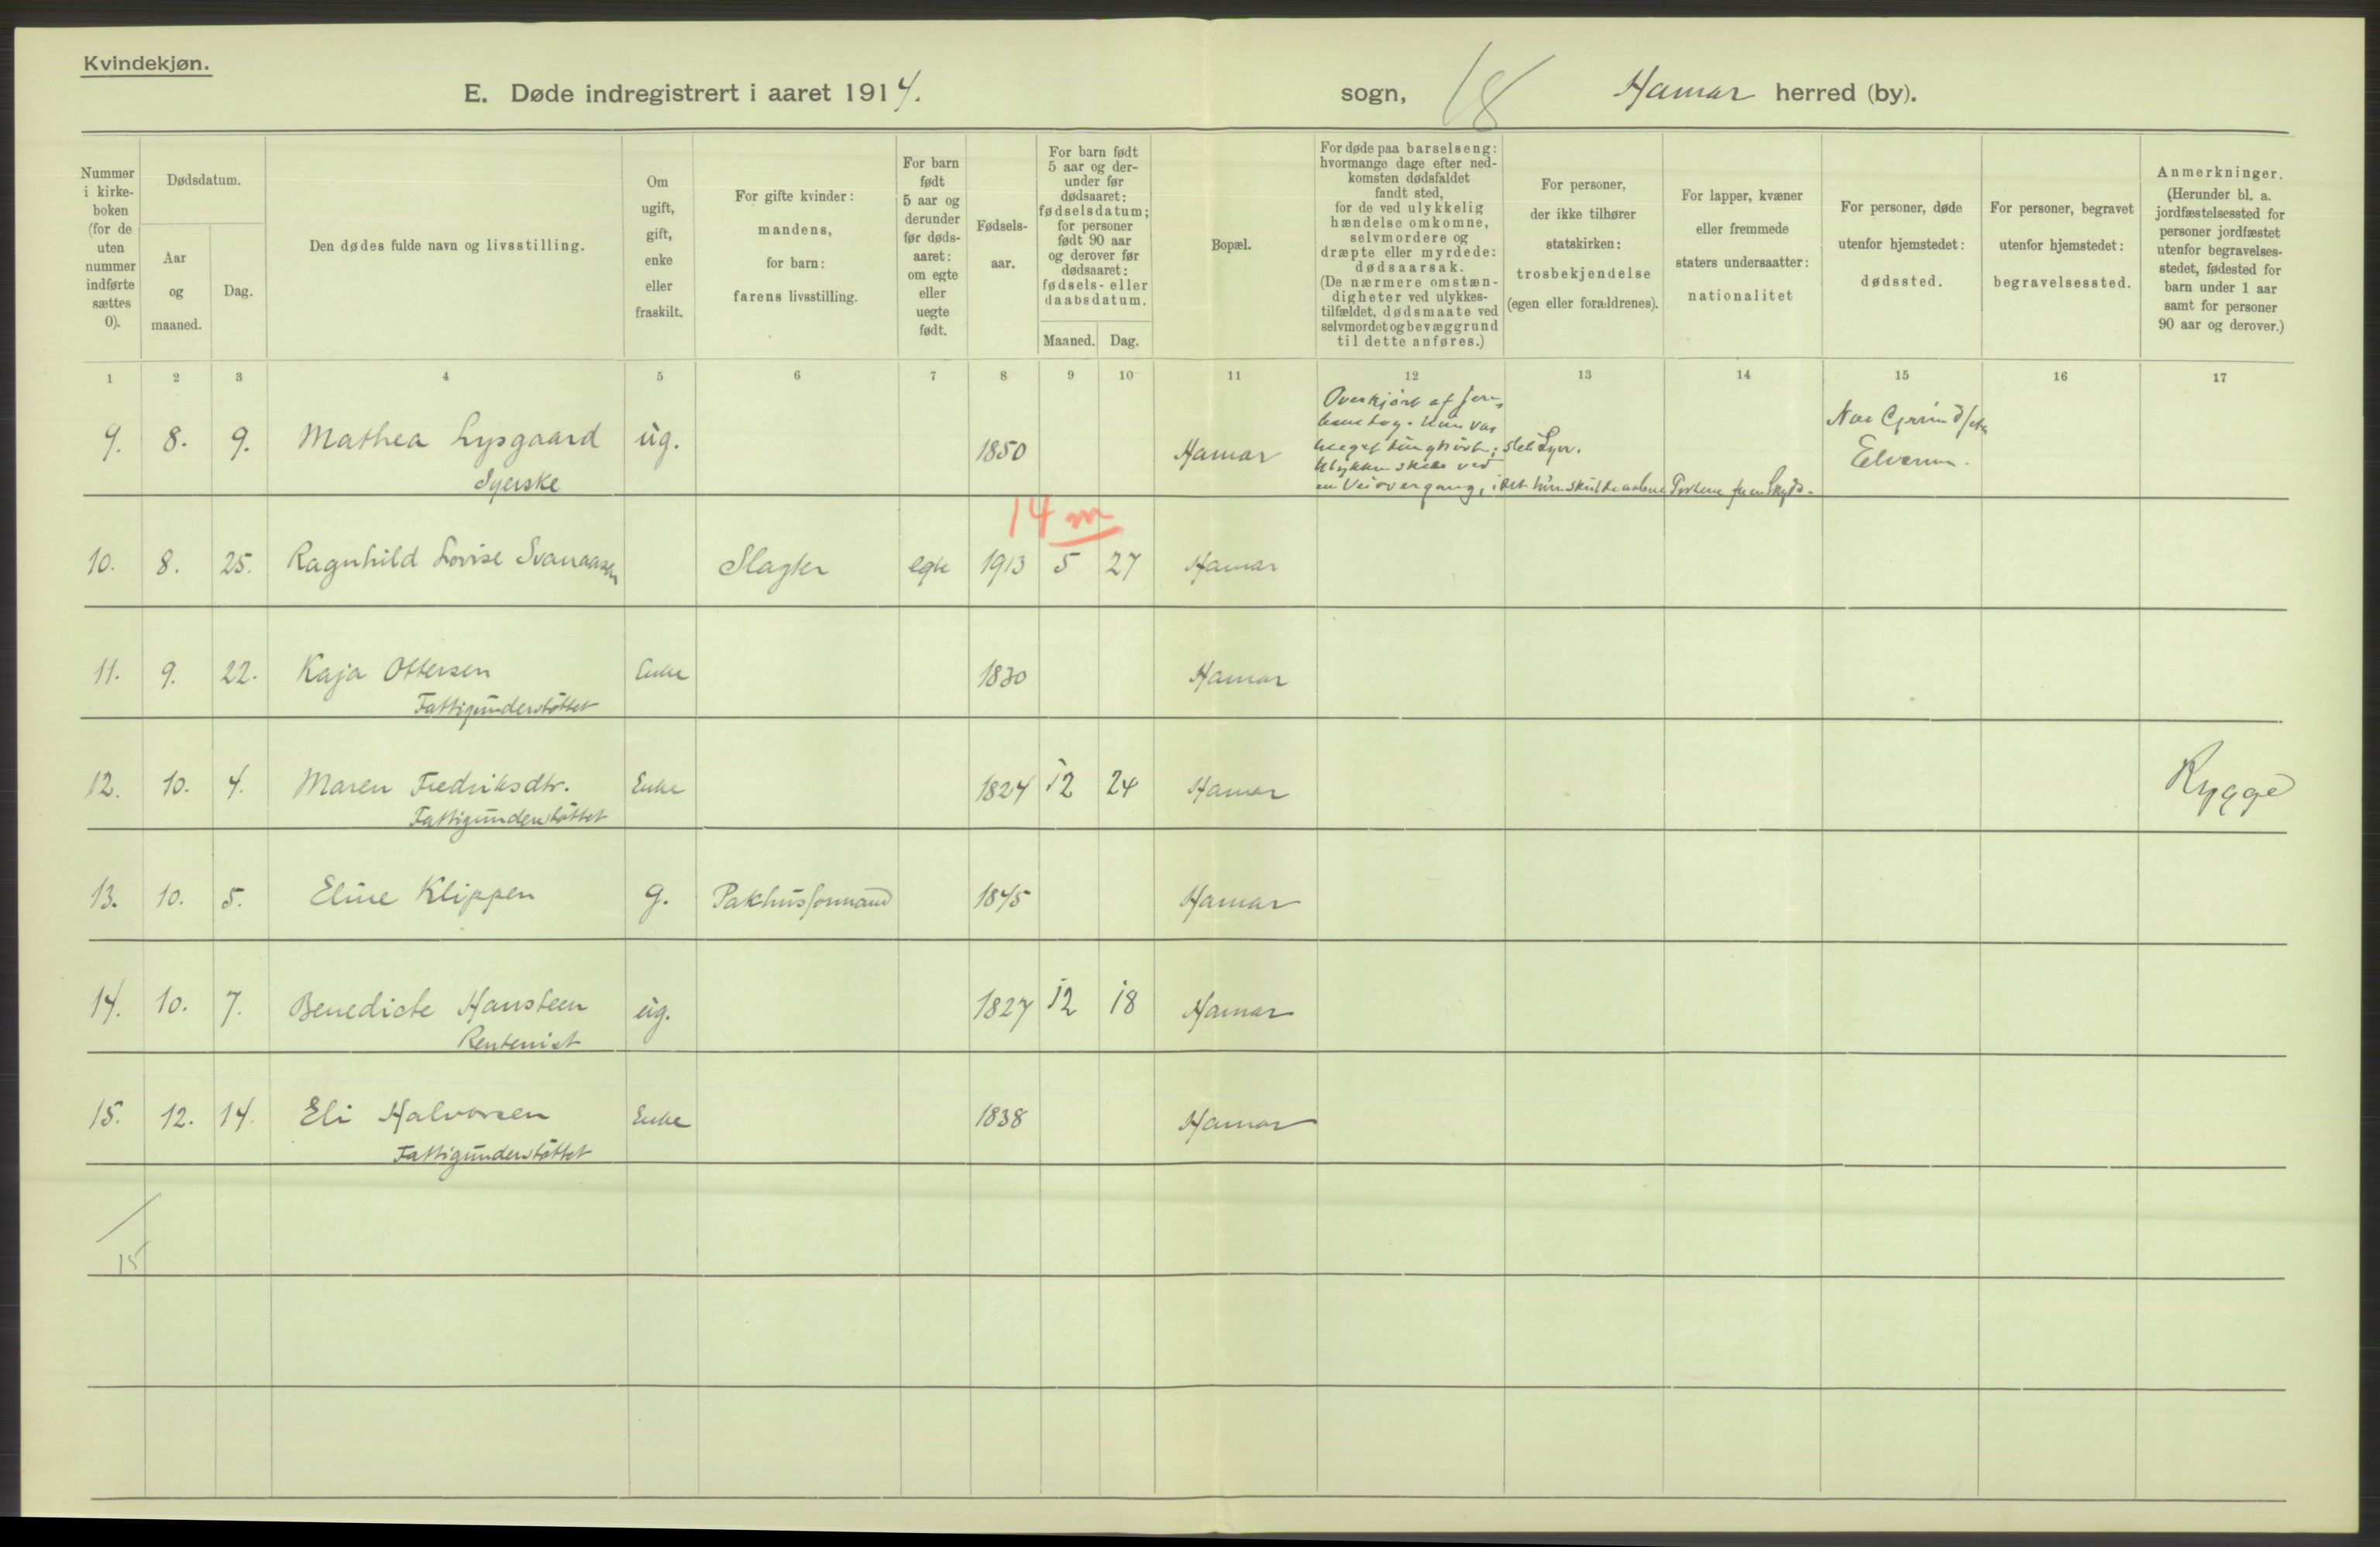 Kvindekjøn.
E. Døde indregistrert i aaret 1914.
sogn, 18 Hamar herred (by).
Nummer
i kirke-
boken
(for de
uten
nummer
indførte
sættes
0).
Dødsdatum.
Aar
og
maaned.
Dag.
Den dødes fulde navn og livsstilling.
Om
ugift,
gift,
enke
eller
fraskilt.
For gifte kvinder:
mandens,
for barn:
farens livsstilling.
For barn
født
5 aar og
derunder
før døds-
aaret:
om egte
eller
uegte
født.
Fødsels-
aar.
For barn født
5 aar og der-
under før
dødsaaret:
fødselsdatum;
for personer
født 90 aar
og derover før
dødsaaret:
fødsels- eller
daabsdatum.
Maaned. Dag.
Bopæl.
For døde paa barselseng:
hvormange dage efter ned-
komsten dødsfaldet
fandt sted,
for de ved ulykkelig
hændelse omkomne,
selvmordere og
dræpte eller myrdede:
dødsaarsak.
(De nærmere omstæn-
digheter ved ulykkes-
tilfældet, dødsmaate ved
selvmordet og bevæggrund
til dette anføres.)
For personer,
der ikke tilhører
statskirken:
trosbekjendelse
(egen eller forældrenes).
For lapper, kvæner
eller fremmede
staters undersaatter:
nationalitet
For personer, døde
utenfor hjemstedet:
dødssted.
For personer, begravet
utenfor hjemstedet:
begravelsessted.
Anmerkninger.
(Herunder bl. a.
jordfæstelsessted for
personer jordfæstet
utenfor begravelses-
stedet, fødested for
barn under 1 aar
samt for personer
90 aar og derover.)
1 2 3 4 5 6 7 8 9 10 11 12 13 14 15 16 17
9. 8. 9. Mathea Lysgaard ug. 1850 Hamar
Syerske
Overkjørt af jern-
banetog. Hun var
meget tunghørt; slet Syn.
Ulykken skede ved
en Veiovergang, idet hun skulde aabne Portene for en Skyds.
Nær Grind
Elverum.
14 m
10. 8. 25. Ragnhild Lovise Svanaasen Slagter egte 1913 5 27 Hamar
11. 9. 22. Kaja Ottersen Enke 1830 Hamar
Fattigunderstøttet
12. 10. 4. Maren Fredriksdtr. Enke 1824 12 24 Hamar Rygge
Fattigunderstøttet
13. 10. 5. Eline Klippen g. Pakhusformand 1845 Hamar
14. 10. 7. Benedicte Hansteen ug. 1827 12 18 Hamar
Rentenist
15. 12. 14. Eli Halvorsen Enke 1838 Hamar
Fattigunderstøttet
15